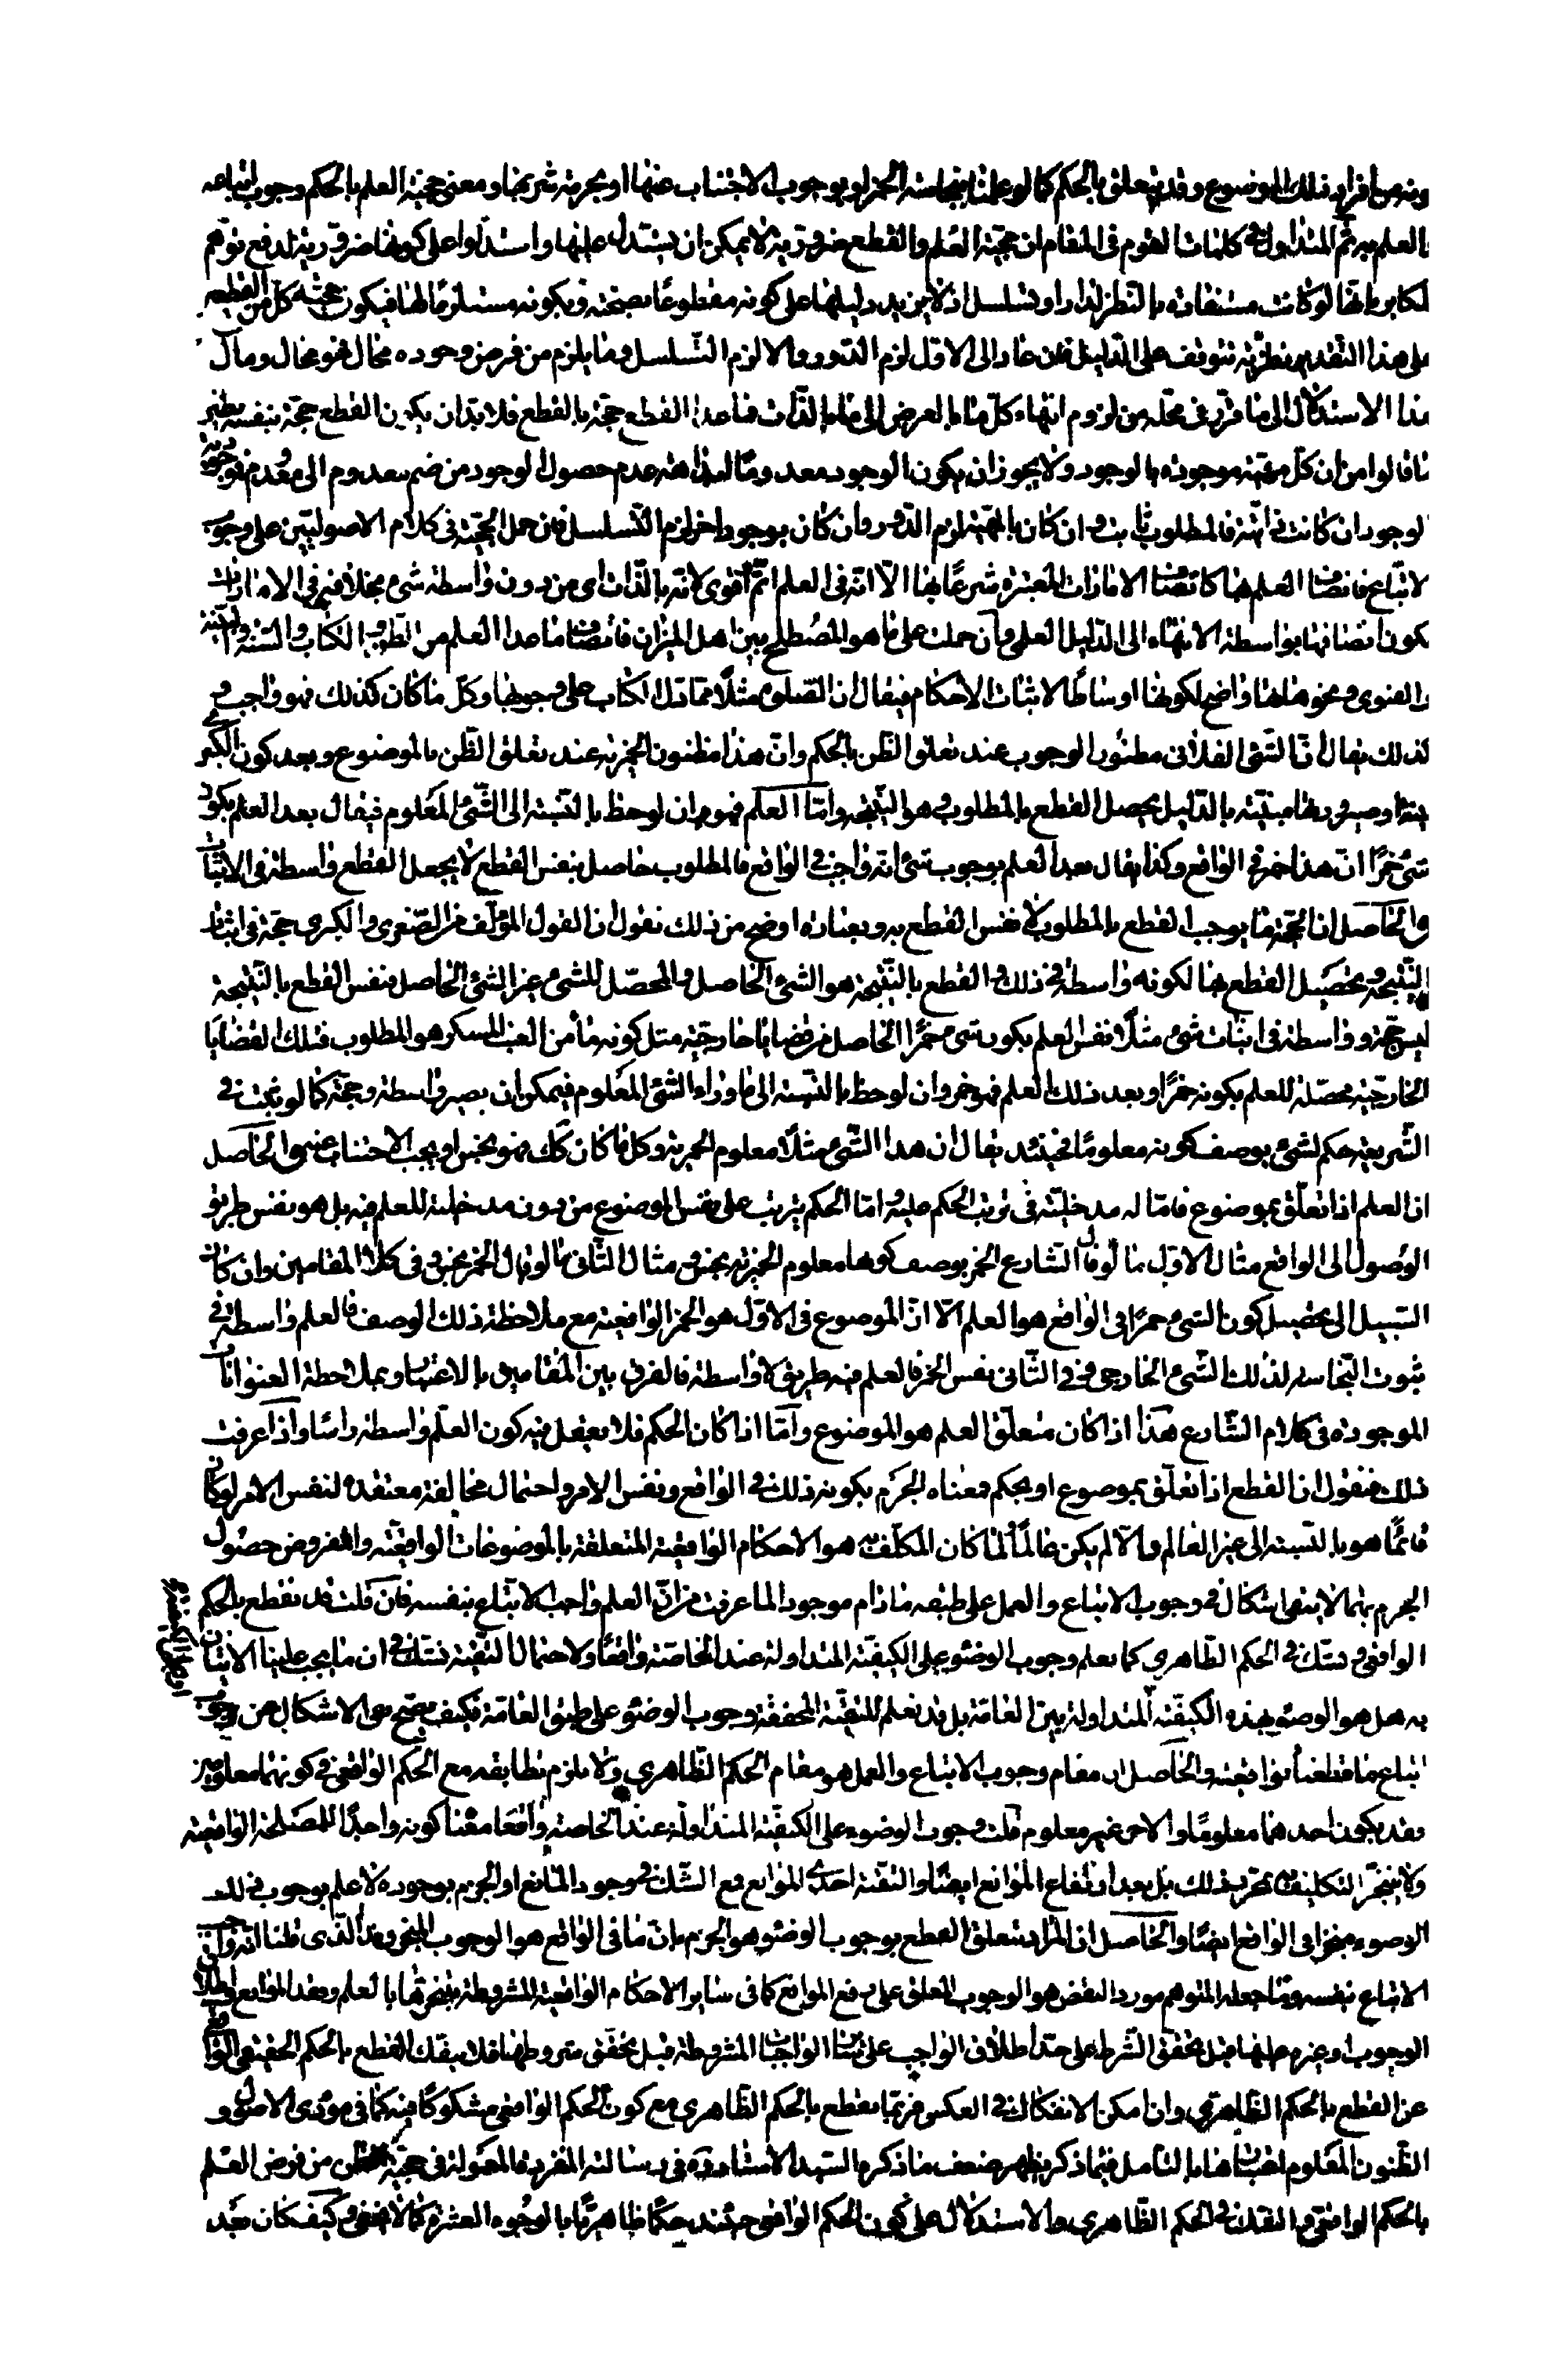 ونه من افراد ذلك الموضوع وقد يتعلق بالحكم كما لو علمنا بنجاسة الخمر او بوجوب الاجتناب عنها او بحرمة شربها ومعنى حجية العلم بالحكم وجوب اتباعه
بالعلم به ثم المتداول في كلمات القوم في المقام ان حجية العلم والقطع ضرورية لا يمكن ان يستدل عليها واستدلوا على كونها ضرورية لدفع توهم
لمكابر بانها لو كانت مستفادة بالنظر لدار او تسلسل اذ لا يزيد دليلها على كونه مقطوعا بصحته وبكونه مستلزما لها فيكون حجية كل من القطعين
على هذا التقدير نظرية تتوقف على الدليل فان عاد الى الاول لزم الدور والا لزم التسلسل وما يلزم من فرض وجوده محال فهو محال ومآل
هذا الاستدلال الى ما قرر في محله من لزوم انتهاء كل ما بالعرض الى ما بالذات فما عدا القطع حجة بالقطع فلا بد ان يكون القطع حجة بنفسه نظير
ما قالوا من ان كل مهية موجودة بالوجود ولا يجوز ان يكون الوجود معدوما لبداهة عدم حصول الوجود من ضم معدوم الى معدوم فوجودية
لوجود ان كانت ذاتية فالمطلوب ثابت وان كان بالمهية لزم الدور وان كان بوجود اخر لزم التسلسل فان حمل الحجية في كلام الاصوليين على وجوب
لاتباع فاتصاف العلم بها كاتصاف الامارات المعتبرة شرعا بها الا انه في العلم اتم واقوى لانه بالذات اى من دون واسطة شئ بخلافه في الامارات
يكون اتصافها بواسطة الانتهاء الى الدليل العلمي وان حملت على ما هو المصطلح بين اهل الميزان فاتصاف ما عدا العلم من الظن والكتاب والسنة والبينة
والفتوى ونحوها بها واضح لكونها اوساطا لاثبات الاحكام فيقال ان الصلوة مثلا مما دل الكتاب على وجوبها وكل ما كان كذلك فهو واجب و
لذلك يقال ان الشئ الفلاني مظنون الوجوب عند تعلق الظن بالحكم وان هذا مظنون الخمرية عند تعلق الظن بالموضوع وبعد كون الكبرى
بينة او صيرورتها مبينة بالدليل يحصل القطع بالمطلوب وهو النتيجة واما العلم فهو ان لوحظ بالنسبة الى الشئ المعلوم فيقال بعد العلم بكون
شئ خمرا ان هذا خمر في الواقع وكذا يقال بعد العلم بوجوب شئ انه واجب في الواقع فالمطلوب حاصل بنفس القطع لا بجعل القطع واسطة في الاثبات
والحاصل ان الحجة ما يوجب القطع بالمطلوب لا نفس القطع به وبعبارة اوضح من ذلك نقول ان القول المؤلف من الصغرى والكبرى حجة في اثبات
النتيجة وتحصيل القطع بها لكونه واسطة في ذلك والقطع بالنتيجة هو الشئ الحاصل والمحصل للشئ غير الشئ الحاصل فنفس القطع بالنتيجة
ليس حجة وواسطة في اثبات شئ مثلا نفس العلم بكون شئ خمرا الحاصل من قضايا خارجية مثل كونه ماء من العنب المسكر هو المطلوب فتلك القضايا
الخارجية محصلة للعلم بكونه خمرا وبعد ذلك العلم فهو خمر وان لوحظ بالنسبة الى ما وراء الشئ المعلوم فيمكن ان يصير واسطة وحجة كما لو ثبت في
الشريعة حكم لشئ بوصف كونه معلوما فحينئذ يقال ان هذا الشئ مثلا معلوم الخمرية وكل ما كان كك فهو نجس او يجب الاجتناب عنه والحاصل
ان العلم اذا تعلق بموضوع فاما له مدخلية في ترتب الحكم عليه واما الحكم يترتب على نفس الموضوع من دون مدخلية للعلم فيه بل هو نفس طريق
الوصول الى الواقع مثال الاول ما لو قال الشارع الخمر بوصف كونها معلوم الخمرية نجس ومثال الثاني ما لو قال الخمر نجس وفي كلا المقامين وان كان
السبيل الى تحصيل كون الشئ خمرا في الواقع هو العلم الا ان الموضوع في الاول هو الخمر الواقعية مع ملاحظة ذلك الوصف فالعلم واسطة في
ثبوت النجاسة لذلك الشئ الخارجى وفي الثاني نفس الخمر فالعلم فيه طريق لا واسطة فالفرق بين المقامين بالاعتبار وبملاحظة العنوانات
الموجودة في كلام الشارع هذا اذا كان متعلق العلم هو الموضوع واما اذا كان الحكم فلا يعقل فيه كون العلم واسطة راسا واذا عرفت
ذلك فنقول ان القطع اذا تعلق بموضوع او بحكم فمعناه الجزم بكونه ذلك في الواقع ونفس الامر واحتمال مخالفة معتقده لنفس الامر لو كان
فانما هو بالنسبة الى غير العالم والا لم يكن عالما ولما كان المكلف به هو الاحكام الواقعية المتعلقة بالموضوعات الواقعية والمفروض حصول
الجزم بهما لا يبقى اشكال في وجوب الاتباع والعمل على طبقه ما دام موجودا لما عرفت من ان العلم واجب الاتباع بنفسه فان قلت قد نقطع بالحكم
الواقعي ونشك في الحكم الظاهري كما نعلم وجوب الوضوء على الكيفية المتداولة عند الخاصة واقعا ولاحتمال التقية نشك في ان ما يجب علينا الاتيان
به هل هو الوضوء بهذه الكيفية المتداولة بين العامة بل قد نعلم للتقية المحققة وجوب الوضوء على طبق العامة فكيف يصح نفي الاشكال عن وجوب
اتباع ما قطعنا بواقعيته والحاصل ان مقام وجوب الاتباع والعمل هو مقام الحكم الظاهري ولا يلزم تطابقه مع الحكم الواقعي في كونهما معلومين
فقد يكون احدهما معلوما والاخر غير معلوم قلت وجوب الوضوء على الكيفية المتداولة عند الخاصة واقعا معناه كونه واجدا للمصلحة الواقعية
ولا يتنجز التكليف بمجرد ذلك بل بعد ارتفاع الموانع ايضا والتقية احدى الموانع فمع الشك في وجود المانع او الجزم بوجوده لا علم بوجوب ذلك
الوضوء منجزا في الواقع ايضا والحاصل ان المراد بتعلق القطع بوجوب الوضوء هو الجزم بان ما في الواقع هو الوجوب المنجز وهذا الذي قلنا انه واجب
الاتباع بنفسه وما جعله المتوهم مورد النقض هو الوجوب المعلق على رفع الموانع كما في سائر الاحكام الواقعية المشروطة تنجزها بالعلم وفقد الموانع واطلاق
الوجوب وغيره عليها قبل تحقق الشرط على حد اطلاق الواجب على ساير الواجبات المشروطة قبل تحقق شروطها فلا ينفك القطع بالحكم الحقيقي الواقعي
عن القطع بالحكم الظاهري وان امكن الانفكاك في العكس فربما نقطع بالحكم الظاهري مع كون الحكم الواقعي مشكوكا فيه كما في مؤدى الاصول و
الظنون المعلوم اعتبارها بالتامل فيما ذكر يظهر ضعف ما ذكره السيد الاستاد ره في رسالته المفردة المعمولة في حجية الظن من فرض العلم
بالحكم الواقعي والشك في الحكم الظاهري والاستدلال على كون الحكم الواقعي حينئذ حكما ظاهريا بالوجوه العشرة كما لا يخفى وكيف كان فبعد